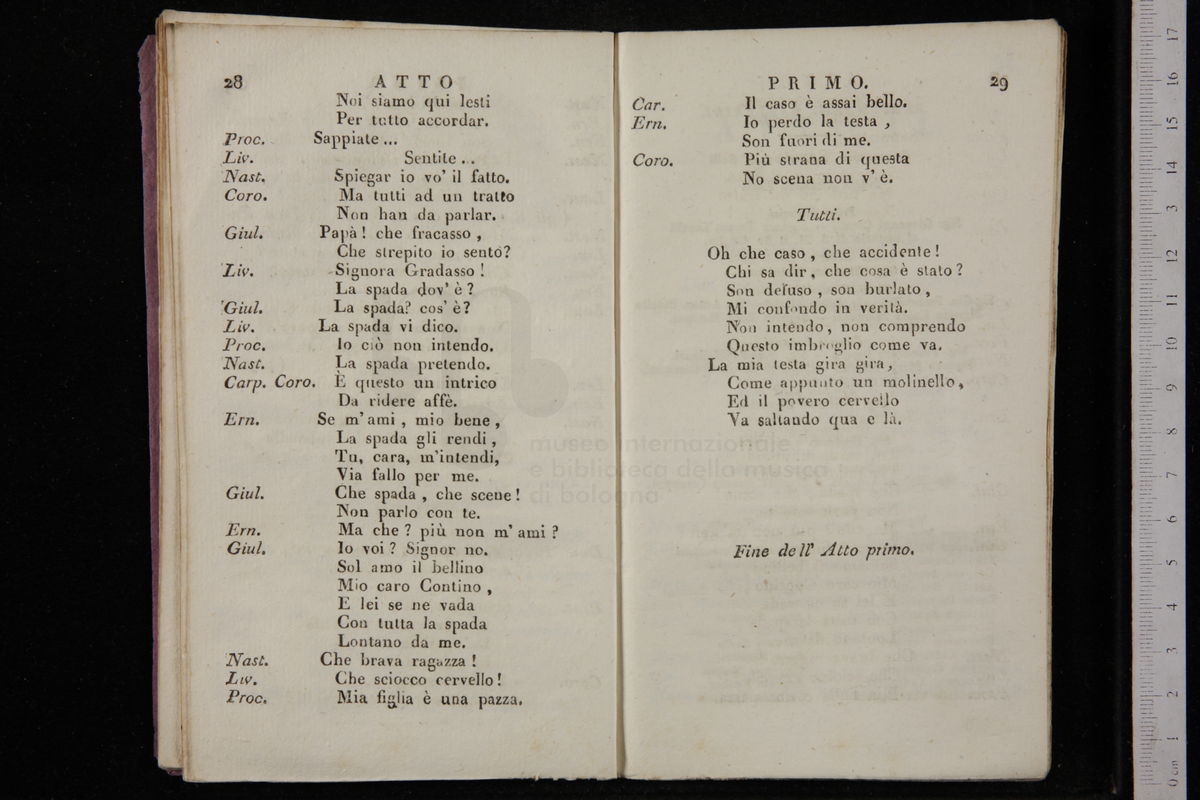 28 ATTO
Noi siamo qui lesti
Per tutto accordar.
Proc. Sappiate ...
Liv. Sentite ..
Nast. Spiegar io vo' il fatto.
Coro. Ma tutti ad un tratto
Non han da parlar.
Giul. Papà ! che fracasso ,
Che strepito io sento?
Liv. Signora Gradasso !
La spada dov' è ?
Giul. La spada? cos' è?
Liv. La spada vi dico.
Proc. Io ciò non intendo.
Nast. La spada pretendo.
Carp. Coro. È questo un intrico
Da ridere affè.
Ern. Se m' ami , mio bene ,
La spada gli rendi ,
Tu, cara, m'intendi,
Via fallo per me.
Giul. Che spada , che scene !
Non parlo con te.
Ern. Ma che ? più non m' ami ?
Giul. Io voi ? Signor no.
Sol amo il bellino
Mio caro Contino ,
E lei se ne vada
Con tutta la spada
Lontano da me.
Nast. Che brava ragazza !
Liv. Che sciocco cervello !
Proc. Mia figlia è una pazza.
PRIMO. 29
Car. Il caso è assai bello.
Ern. Io perdo la testa ,
Son fuori di me.
Coro. Più strana di questa
No scena non v' è.
Tutti.
Oh che caso , che accidente !
Chi sa dir, che cosa è stato ?
Son deluso , son burlato ,
Mi confondo in verità.
Non intendo , non comprendo
Questo imbroglio come va.
La mia testa gira gira,
Come appunto un molinello,
Ed il povero cervello
Va saltando qua e là.
Fine dell' Atto primo.
museo internazionale
e biblioteca della musica
di bologna
0 cm 1 2 3 4 5 6 7 8 9 10 11 12 13 14 15 16 17